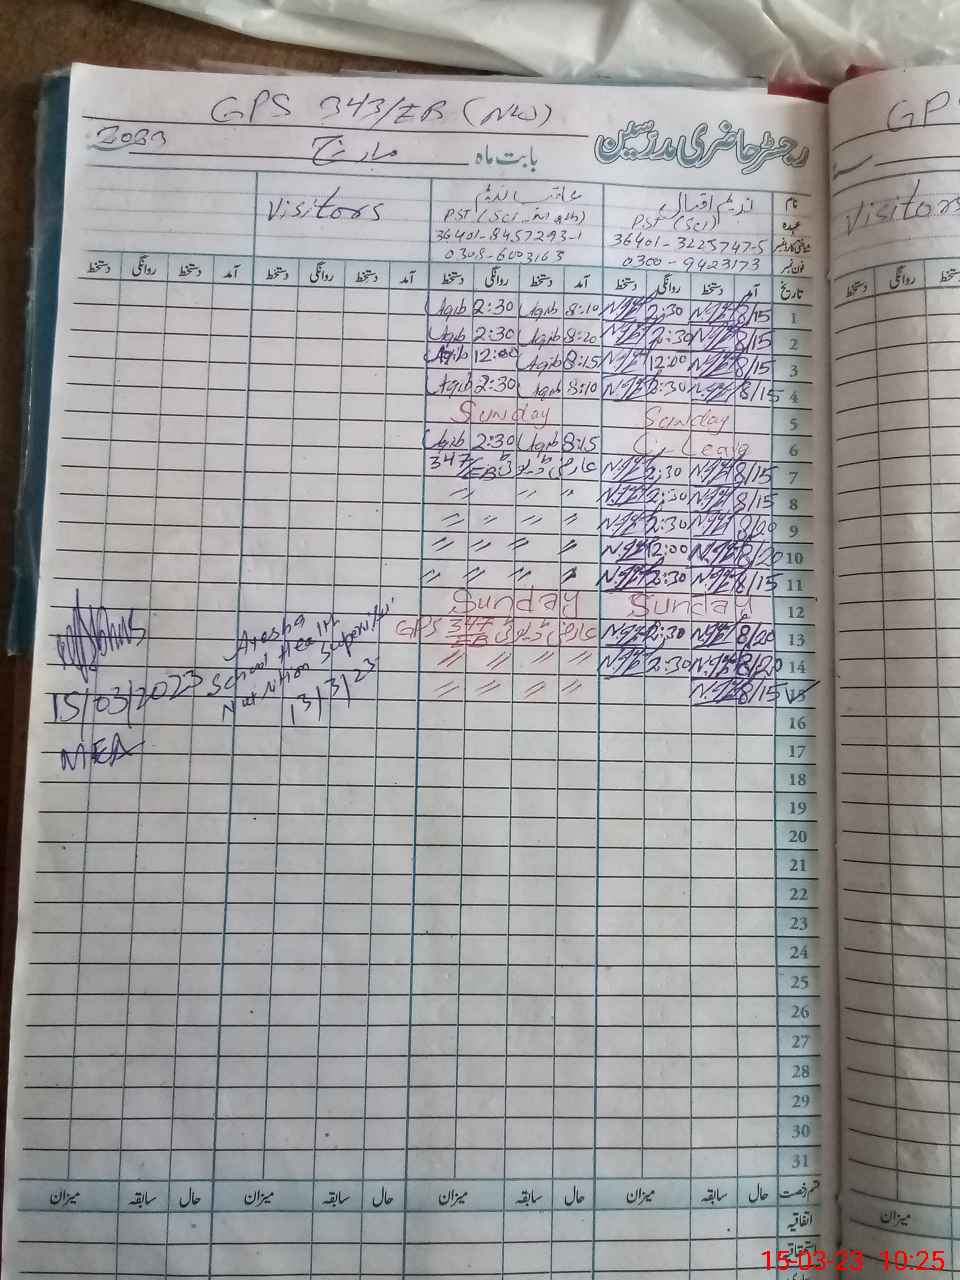 GPS 343/EB (NW)
GP
رجسٹر حاضری مدرسین
بابت ماہ مارچ 2023
نام ندیم اقبال Visitors
Visitors
عہدہ PST (Sci) PST (Sci-Math)
36401-3225747-5 36401-8457293-1
فون نمبر 0300-9423173 0305-6003163
تاریخ آمد دستخط روانگی دستخط آمد دستخط روانگی دستخط آمد دستخط روانگی دستخط آمد دستخط روانگی دستخط
روانگی دستخط
1 8/15 2:30 8:10 Aqib 2:30 Aqib
2 8/15 2:30 8:20 Aqib 2:30 Aqib
3 8/15 12:00 8:15 Aqib 12:00 Aqib
4 8/15 2:30 8:10 Aqib 2:30 Aqib
5 Sunday Sunday
6 C-Leave 8:15 Aqib 2:30 Aqib
7 8/15 2:30 عارضی ڈیوٹی 347/EB
8 8/15 2:30 〃 〃 〃
9 8/20 2:30 〃 〃 〃 〃
10 8/20 12:00 〃 〃 〃 〃
11 8/15 2:30 〃 〃 〃 〃
12 Sunday Sunday
13 8/20 2:30 عارضی ڈیوٹی GPS 347/EB
14 8/20 2:30 〃 〃 〃 〃
15 8/15 〃 〃 〃 〃
Ayesha
School Health
Nutrition Supervisor
13/3/23
15/03/2023
MEA
16
17
18
19
20
21
22
23
24
25
26
27
28
29
30
31
قسم رخصت حال سابقہ میزان حال سابقہ میزان حال سابقہ میزان حال سابقہ میزان
اتفاقیہ
میزان
استحقاقیہ
15-03-23 10:25